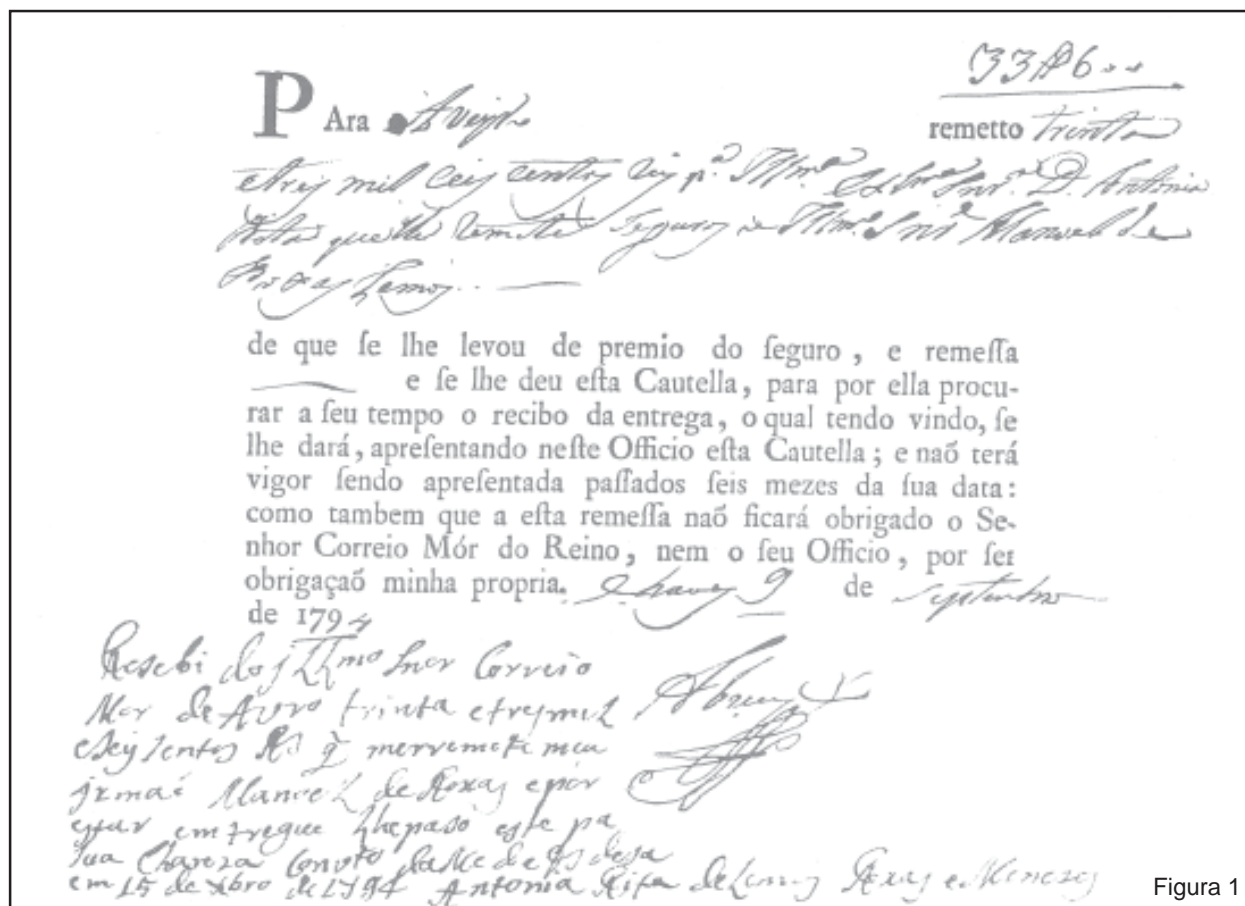 33$6..
PAra Aveyro remetto trinta
e trez mil ceis centos reis p.ª Illmª Exma Snrª D. Antonia
Rita que lhe remete Seguros o Illmº Snr Manoel de
Roxas Lemos.
de que ſe lhe levou de premio do ſeguro, e remeſſa
e ſe lhe deu eſta Cautella, para por ella procu-
rar a ſeu tempo o recibo da entrega, o qual tendo vindo, ſe
lhe dará, apreſentando neſte Officio eſta Cautella; e naõ terá
vigor ſendo apreſentada paſſados ſeis mezes da ſua data:
como tambem que a eſta remeſſa naõ ficará obrigado o Se-
nhor Correio Mór do Reino, nem o ſeu Officio, por ſer
obrigaçaõ minha propria. Chaves 9 de Septembro
de 1794
Resebi do Illmo Snor Correio
Mor de Avero trinta e trez mil
e seysentos Rs q̃ me rremete meu
jrmaé Manoel de Roxas e por
estar emtregue lhe paso este pa
sua Clareza Convto da Me de Ds desa
em 15 de xbro de 1794 Antonia Rita de Lemos Roxas e Menezes
Abreu
Figura 1